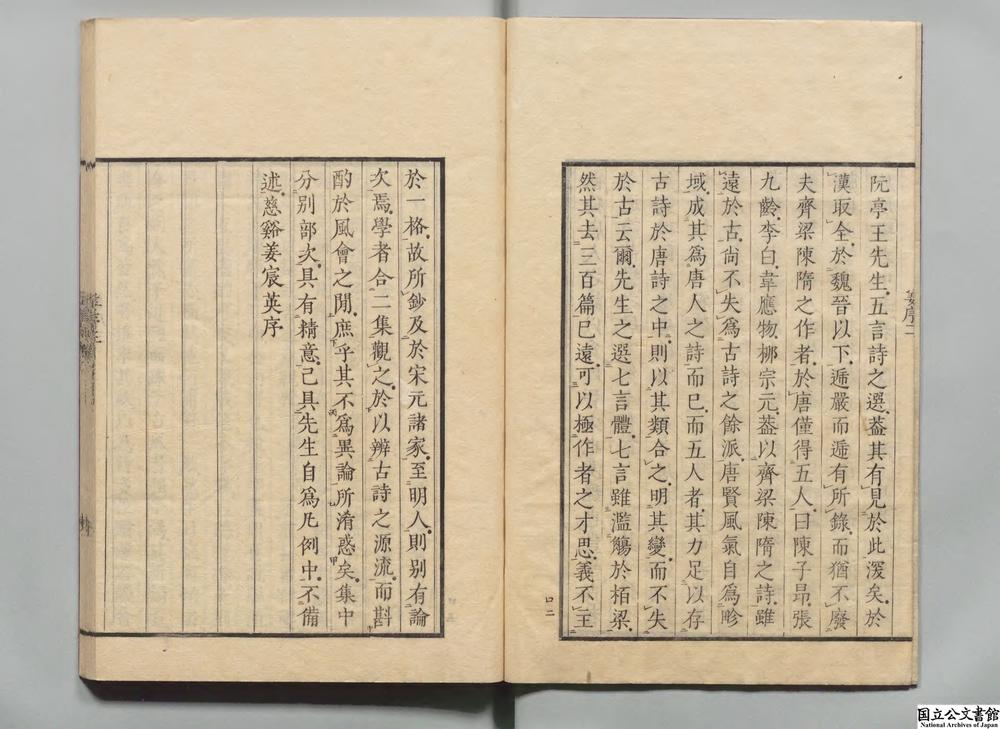 阮亭王先生五言詩之選葢其有見於此深矣於
漢取全於魏晉以下遞嚴而遞有所錄而猶不廢
夫齊梁陳隋之作者於唐僅得五人曰陳子昻張
九齡李白韋應物桞宗元葢以齊梁陳隋之詩雖
遠於古尙不失爲古詩之餘派唐賢風氣自爲畛
域成其爲唐人之詩而已而五人者其力足以存
古詩於唐詩之中則以其類合之明其變而不失
於古云爾先生之選七言體七言雖濫觴於栢梁
然其去三百篇已遠可以極作者之才思義不主
姜序二
口二
於一格故所鈔及於宋元諸家至明人則别有論
次焉學者合二集觀之於以辨古詩之源流而斟
酌於風會之閒庶乎其不爲異論所淆惑矣集中
分别部次具有精意已具先生自爲凡例中不備
述慈谿姜宸英序
国立公文書館
National Archives of Japan